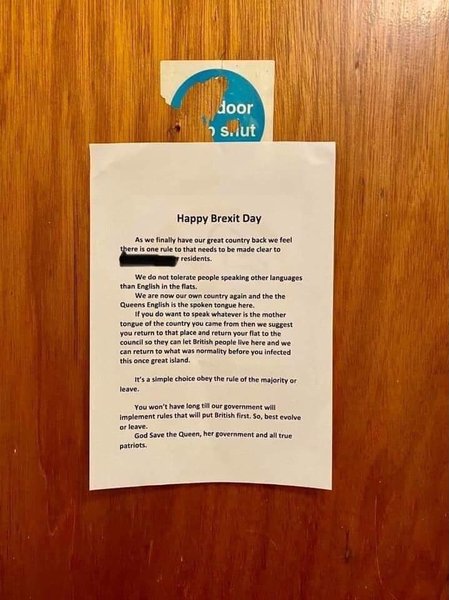 door
shut
Happy Brexit Day
As we finally have our great country back we feel
there is one rule to that needs to be made clear to
r residents.
We do not tolerate people speaking other languages
than English in the flats.
We are now our own country again and the the
Queens English is the spoken tongue here.
If you do want to speak whatever is the mother
tongue of the country you came from then we suggest
you return to that place and return your flat to the
council so they can let British people live here and we
can return to what was normality before you infected
this once great island.
It's a simple choice obey the rule of the majority or
leave.
You won't have long till our government will
implement rules that will put British first. So, best evolve
or leave.
God Save the Queen, her government and all true
patriots.